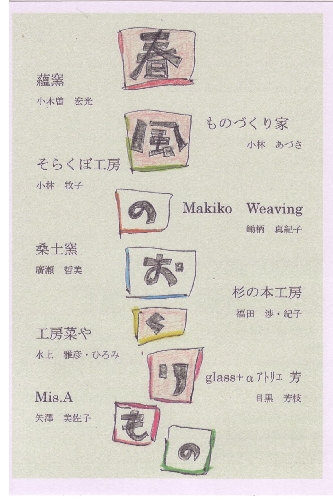 春風のおくりもの
蘊窯
小木曽 宏光
ものづくり家
小林 あづさ
そらくぼ工房
小林 牧子
Makiko Weaving
鋤柄 真紀子
桑土窯
廣瀬 哲美
杉の本工房
福田 渉・紀子
工房菜や
水上 雅彦・ひろみ
glass+αアトリエ 芳
目黒 芳枝
Mis.A
矢澤 美佐子